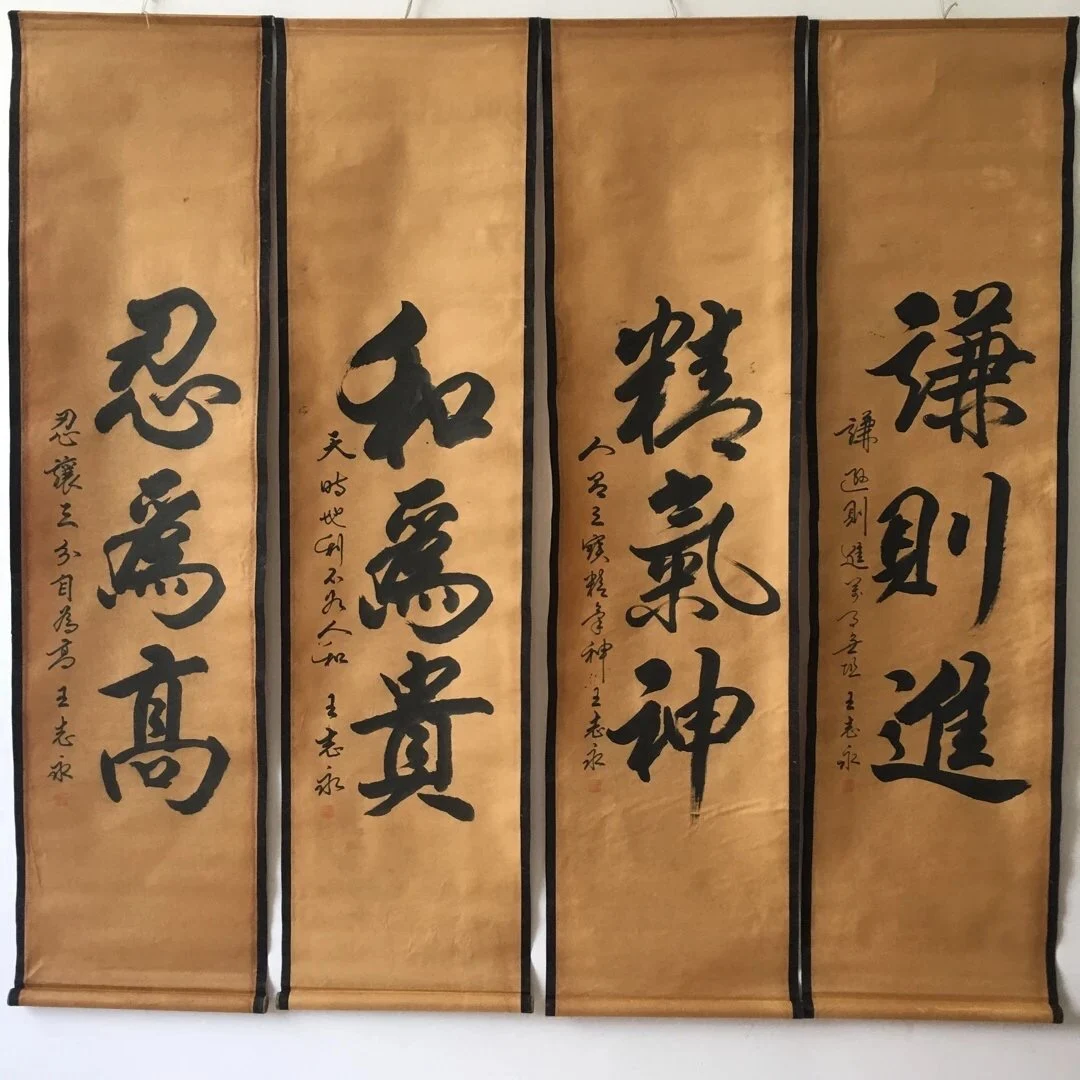 謙則進
謙遜則進萬事無阻 王志永
精氣神
人有三寶精氣神 王志永
和爲貴
天時地利不如人和 王志永
忍爲高
忍讓三分自為高 王志永